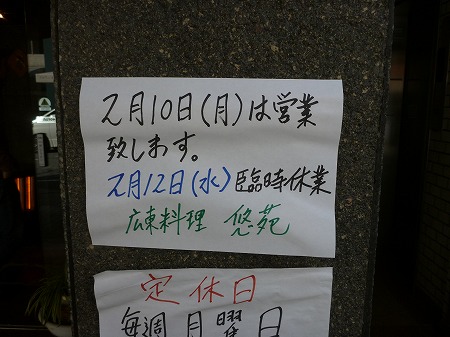 2月10日(月)は営業
致します。
2月12日(水)臨時休業
広東料理 悠苑
定休日
毎週月曜日